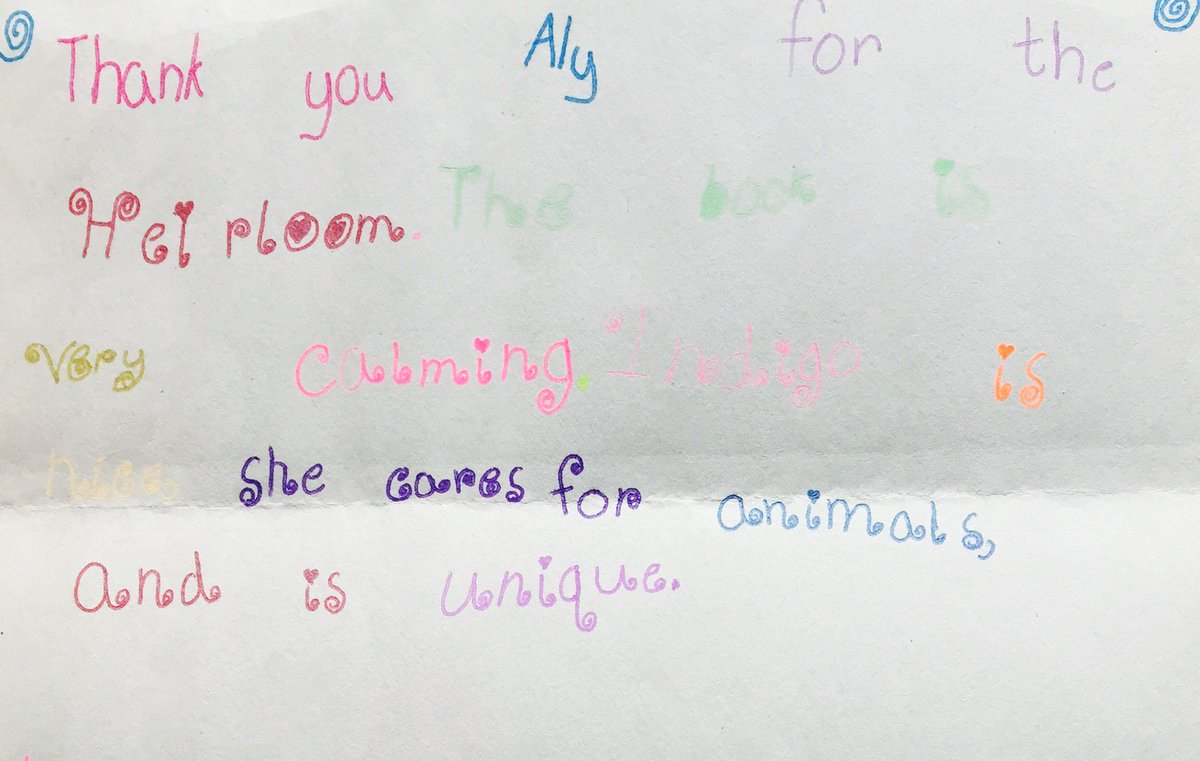 Thank you Aly for the
Heirloom. The book is
very calming. Indigo is
nice, she cares for animals,
and is unique.